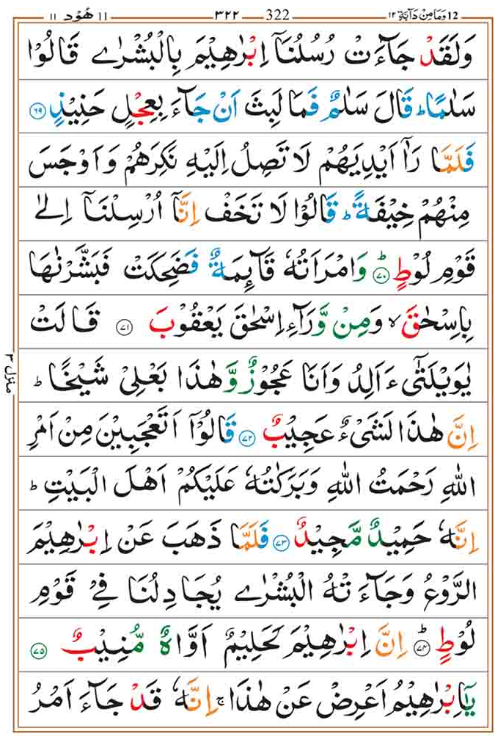 ١١ هُوْد ١١ ٣٢٢ 322 12 وَمَا مِنْ دَآبَّةٍ ١٢
وَلَقَدْ جَآءَتْ رُسُلُنَاۤ اِبْرٰهِيْمَ بِالْبُشْرٰى قَالُوْا
سَلٰمًا ؕ قَالَ سَلٰمٌ فَمَا لَبِثَ اَنْ جَآءَ بِعِجْلٍ حَنِيْذٍ ٦٩
فَلَمَّا رَاٰۤ اَيْدِيَهُمْ لَا تَصِلُ اِلَيْهِ نَكِرَهُمْ وَاَوْجَسَ
مِنْهُمْ خِيْفَةً ؕ قَالُوْا لَا تَخَفْ اِنَّاۤ اُرْسِلْنَاۤ اِلٰى
قَوْمِ لُوْطٍ ؕ ٧٠ وَامْرَاَتُهٗ قَآئِمَةٌ فَضَحِكَتْ فَبَشَّرْنٰهَا
بِاِسْحٰقَ ۙ وَمِنْ وَّرَآءِ اِسْحٰقَ يَعْقُوْبَ ٧١ قَالَتْ
يٰوَيْلَتٰٓى ءَاَلِدُ وَاَنَا عَجُوْزٌ وَّهٰذَا بَعْلِىْ شَيْخًا ؕ
اِنَّ هٰذَا لَشَىْءٌ عَجِيْبٌ ٧٢ قَالُوْۤا اَتَعْجَبِيْنَ مِنْ اَمْرِ
اللّٰهِ رَحْمَتُ اللّٰهِ وَبَرَكٰتُهٗ عَلَيْكُمْ اَهْلَ الْبَيْتِ ؕ
اِنَّهٗ حَمِيْدٌ مَّجِيْدٌ ٧٣ فَلَمَّا ذَهَبَ عَنْ اِبْرٰهِيْمَ
الرَّوْعُ وَجَآءَتْهُ الْبُشْرٰى يُجَادِلُنَا فِىْ قَوْمِ
لُوْطٍ ؕ ٧٤ اِنَّ اِبْرٰهِيْمَ لَحَلِيْمٌ اَوَّاهٌ مُّنِيْبٌ ٧٥
يٰۤاِبْرٰهِيْمُ اَعْرِضْ عَنْ هٰذَا ۚ اِنَّهٗ قَدْ جَآءَ اَمْرُ
منزل ٣